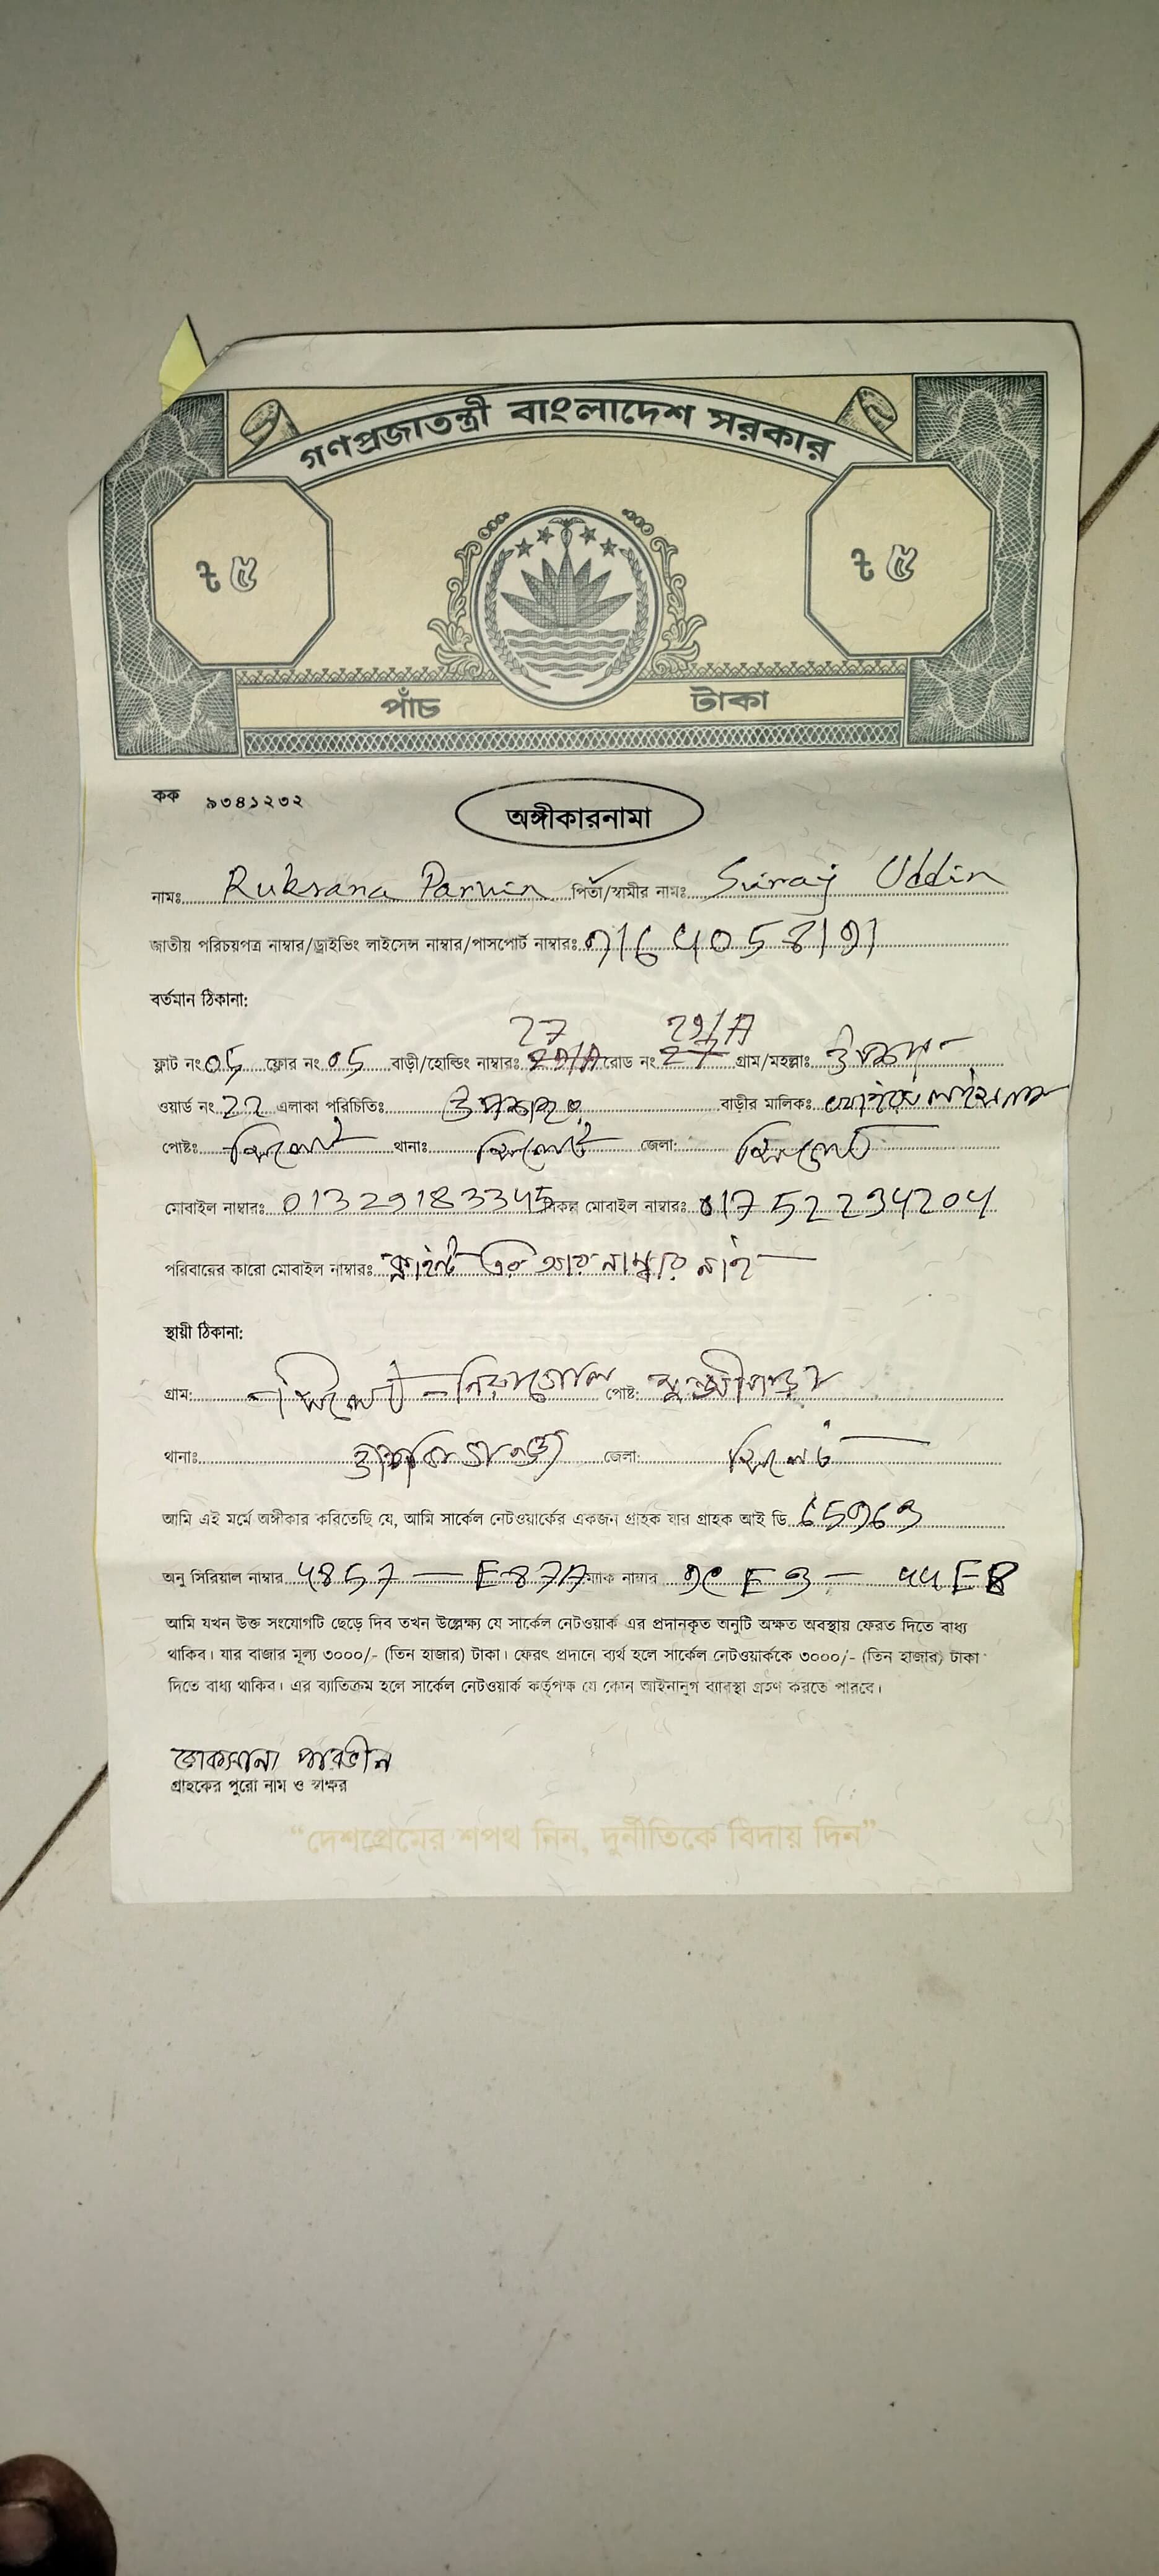 গণপ্রজাতন্ত্রী বাংলাদেশ সরকার
৳ ৫ ৳ ৫
পাঁচ টাকা
কক ৯৩৪১২৩২
অঙ্গীকারনামা
নামঃ Ruksana Parvin পিতা/স্বামীর নামঃ Siraj Uddin
জাতীয় পরিচয়পত্র নাম্বার/ড্রাইভিং লাইসেন্স নাম্বার/পাসপোর্ট নাম্বারঃ
বর্তমান ঠিকানা:
27 29/A
ফ্লাট নং 05 ফ্লোর নং 05 বাড়ী/হোল্ডিং নাম্বারঃ রোড নং গ্রাম/মহল্লাঃ
ওয়ার্ড নং 22 এলাকা পরিচিতিঃ উপশহর বাড়ীর মালিকঃ
পোষ্টঃ সিলেট থানাঃ সিলেট জেলা: সিলেট
মোবাইল নাম্বারঃ 01329183345 বিকল্প মোবাইল নাম্বারঃ 01752234204
পরিবারের কারো মোবাইল নাম্বারঃ ক্লাইন্ট এর আর নাম্বার নাই
স্থায়ী ঠিকানা:
গ্রাম: সিলেট পোষ্ট:
থানাঃ জেলা: সিলেট
আমি এই মর্মে অঙ্গীকার করিতেছি যে, আমি সার্কেল নেটওয়ার্কের একজন গ্রাহক যার গ্রাহক আই ডি
অনু সিরিয়াল নাম্বার 4857 — E87A ম্যাক নাম্বার
আমি যখন উক্ত সংযোগটি ছেড়ে দিব তখন উল্লেক্ষ্য যে সার্কেল নেটওয়ার্ক এর প্রদানকৃত অনুটি অক্ষত অবস্থায় ফেরত দিতে বাধ্য
থাকিব। যার বাজার মূল্য ৩০০০/- (তিন হাজার) টাকা। ফেরৎ প্রদানে ব্যর্থ হলে সার্কেল নেটওয়ার্ককে ৩০০০/- (তিন হাজার) টাকা
দিতে বাধ্য থাকিব। এর ব্যাতিক্রম হলে সার্কেল নেটওয়ার্ক কর্তৃপক্ষ যে কোন আইনানুগ ব্যাবস্থা গ্রহণ করতে পারবে।
রোকসানা পারভীন
গ্রাহকের পুরো নাম ও স্বাক্ষর
“দেশপ্রেমের শপথ নিন, দুর্নীতিকে বিদায় দিন”